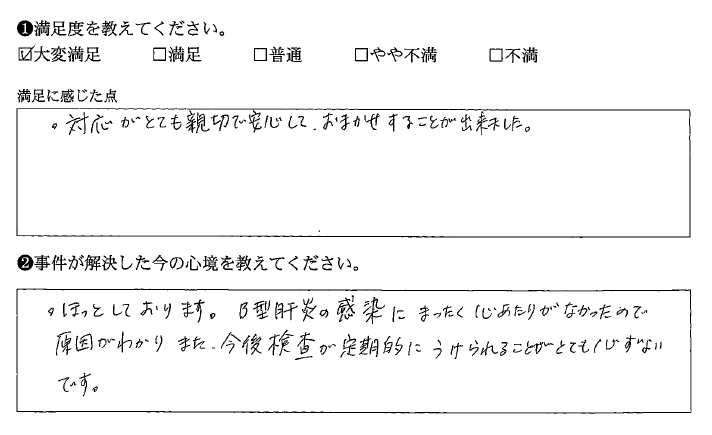 ❶満足度を教えてください。
☑大変満足 □満足 □普通 □やや不満 □不満
満足に感じた点
。対応がとても親切で安心して、おまかせすることが出来ました。
❷事件が解決した今の心境を教えてください。
。ほっとしております。B型肝炎の感染にまったく心あたりがなかったので
原因がわかりまた、今後検査が定期的にうけられることがとても心づよい
です。